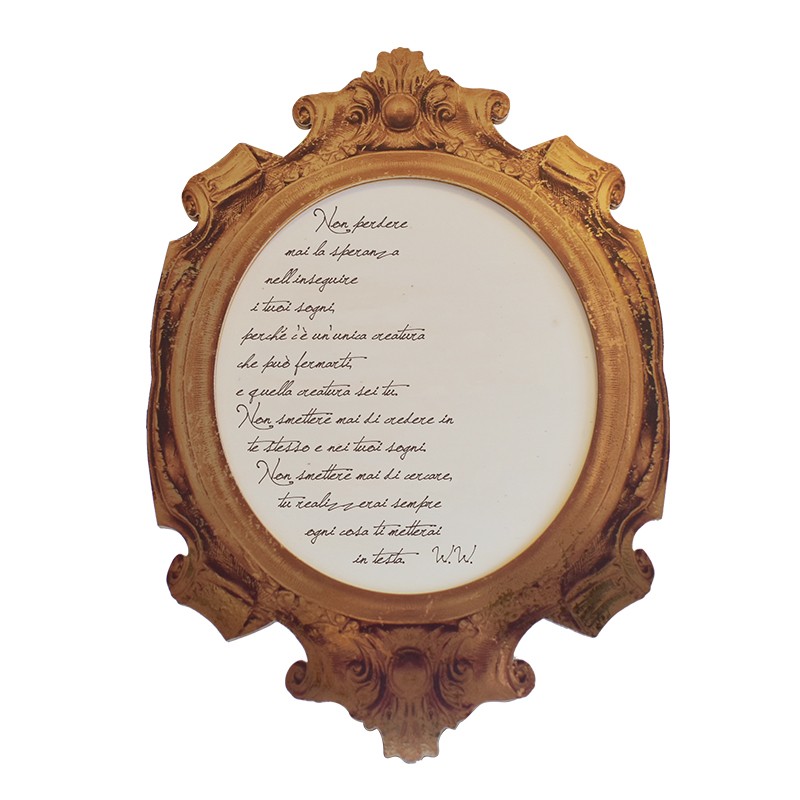 Non perdere
mai la speranza
nell'inseguire
i tuoi sogni,
perché c'è un'unica creatura
che può fermarti,
e quella creatura sei tu.
Non smettere mai di credere in
te stesso e nei tuoi sogni.
Non smettere mai di cercare,
tu realizzerai sempre
ogni cosa ti metterai
in testa. W.W.